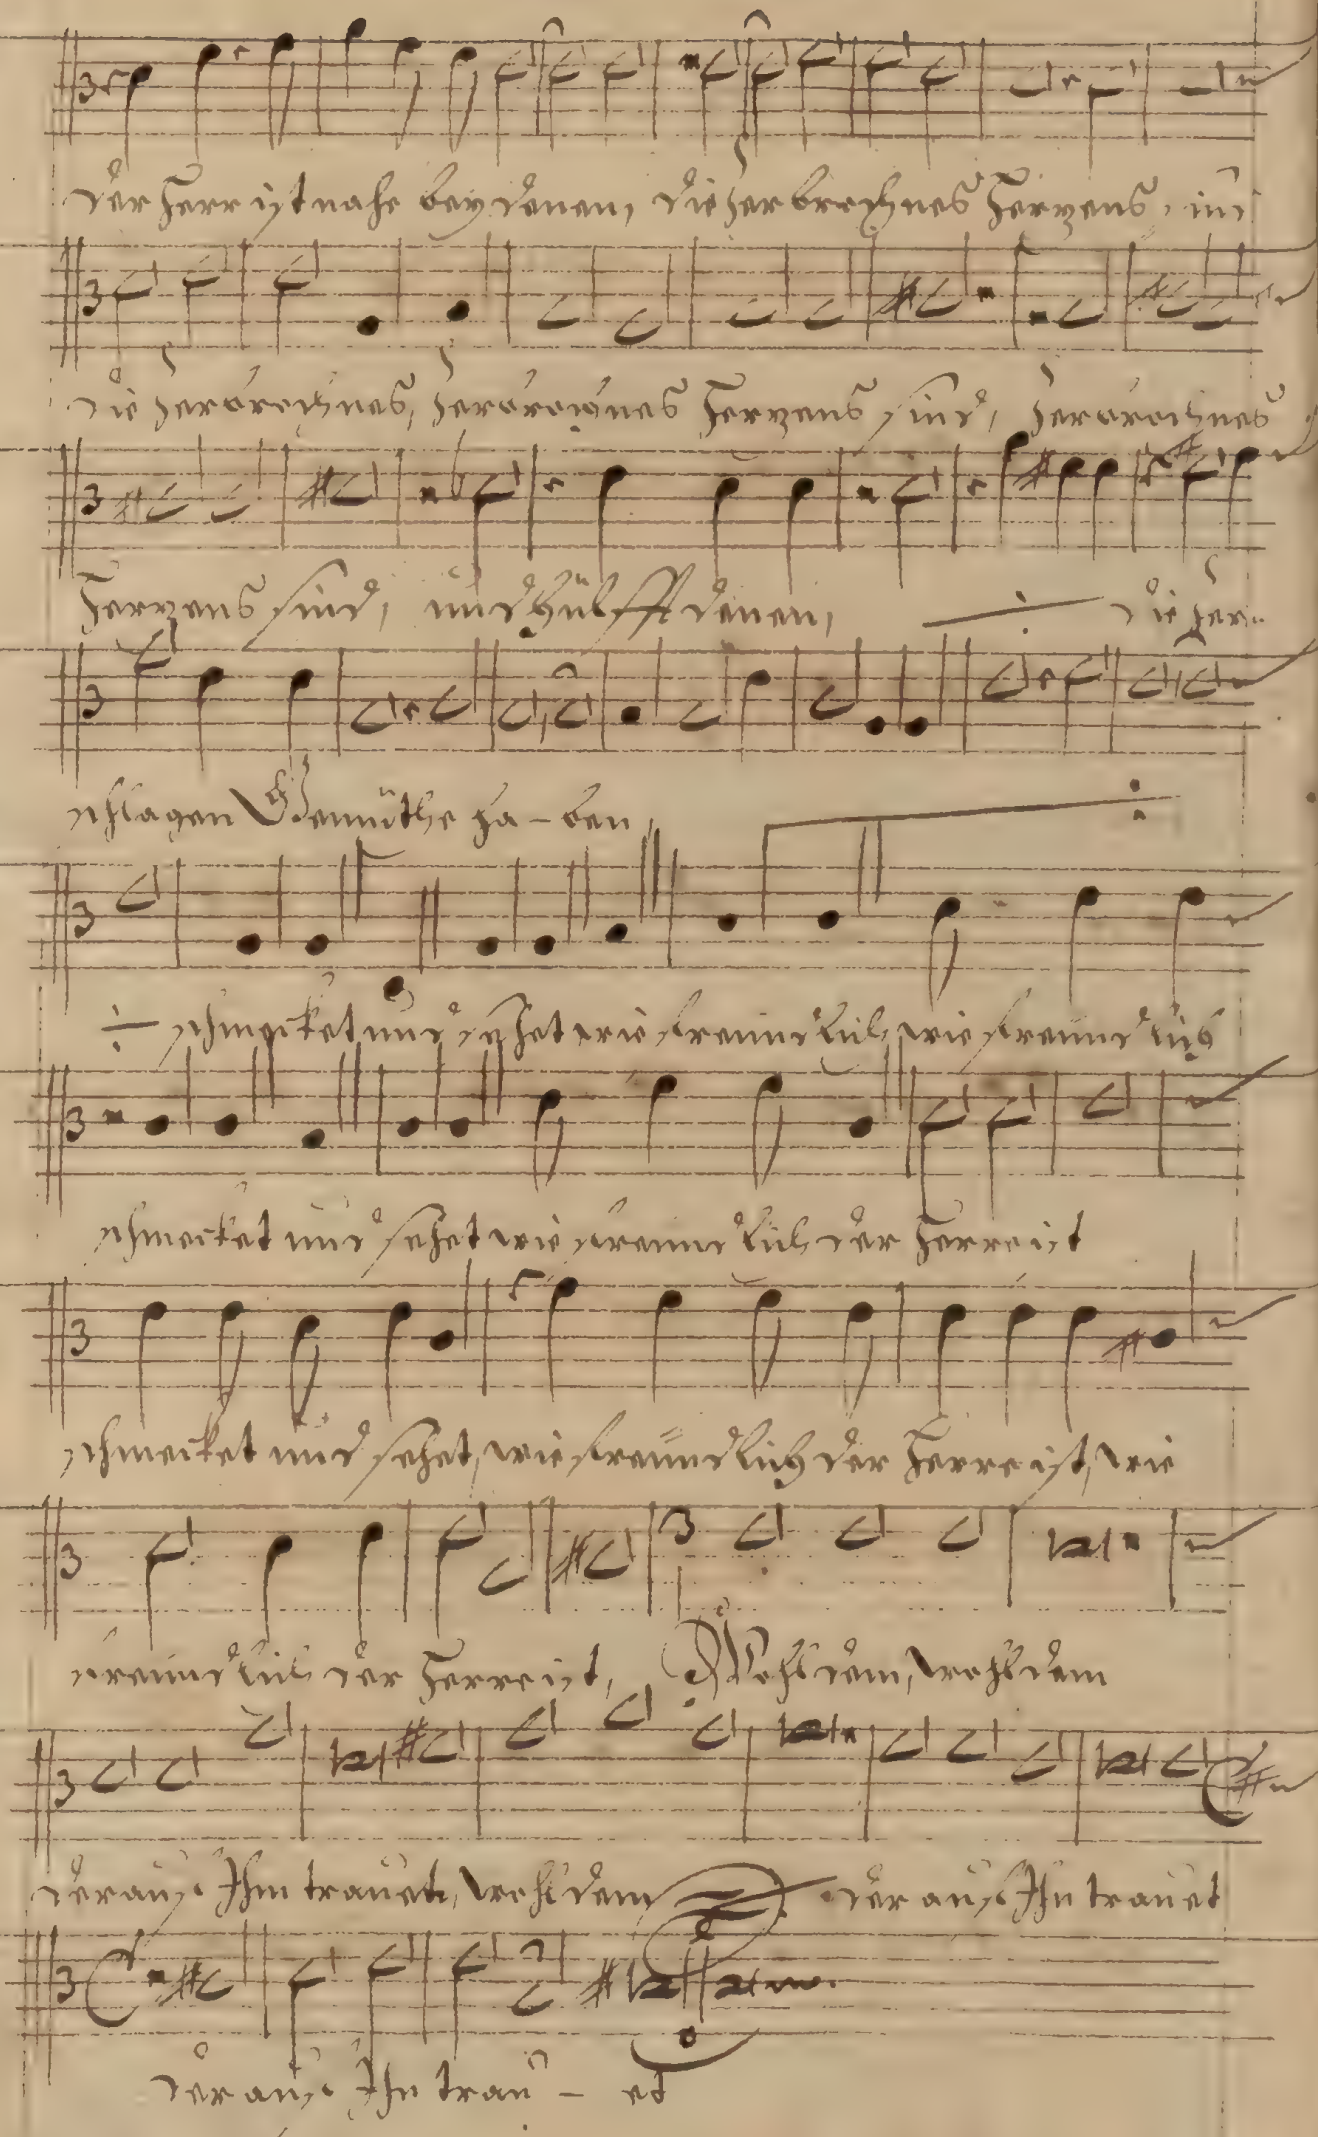 Der Herr ist nahe bey denen, die zerbrochnes Herzens, und
die zerbrochnes, zerbrochnes Herzens sind, zerbrochnes
Herzens sind, und hülfft denen, ÷ die zer-
schlagen Gemüthe ha-ben, ÷
÷ schmecket und sehet wie freundlich, wie freundlich
schmecket und sehet wie freundlich der Herre ist
schmecket und sehet, wie freundlich der Herre ist, wie
freundlich der Herre ist, Wohl dem, wohl dem
der auf Ihn trauet, wohl dem der auf Ihn trauet
der auf Ihn trau - et